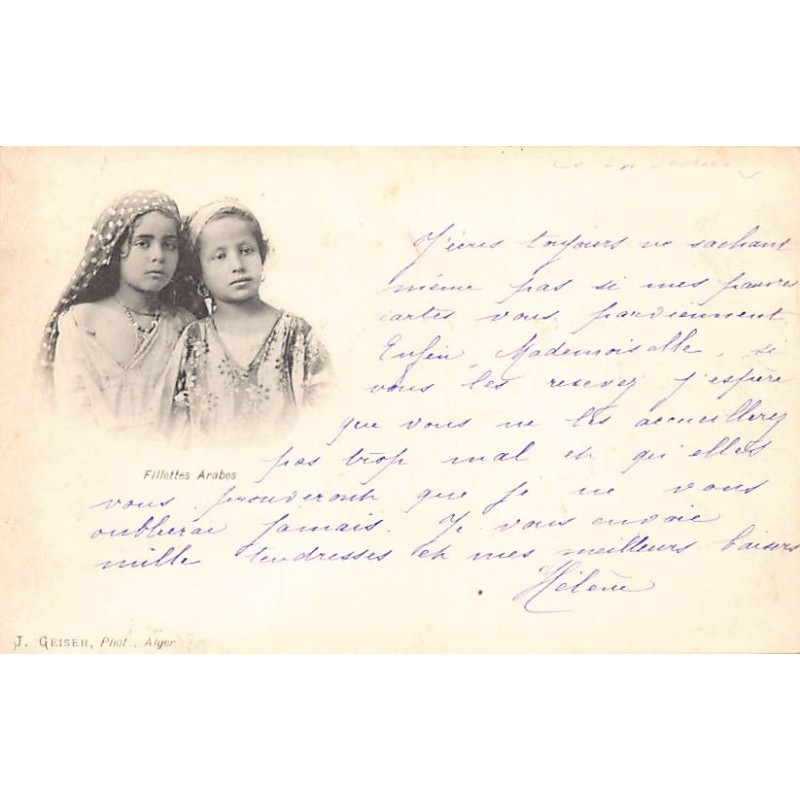 J'écris toujours ne sachant
même pas si mes pauvres
cartes vous parviennent.
Enfin, Mademoiselle, si
vous les recevez j'espère
que vous ne les accueillerez
pas trop mal et qu'elles
vous prouveront que je ne vous
oublierai jamais. Je vous envoie
mille tendresses et mes meilleurs baisers
Hélène
Fillettes Arabes
J. GEISER, Phot., Alger